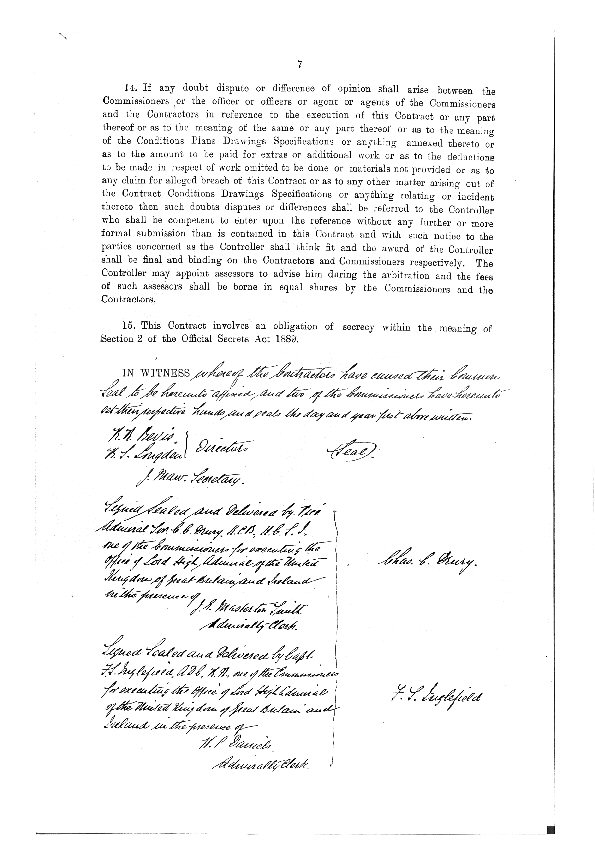 7
14. If any doubt dispute or difference of opinion shall arise between the
Commissioners or the officer or officers or agent or agents of the Commissioners
and the Contractors in reference to the execution of this Contract or any part
thereof or as to the meaning of the same or any part thereof or as to the meaning
of the Conditions Plans Drawings Specifications or anything annexed thereto or
as to the amount to be paid for extras or additional work or as to the deductions
to be made in respect of work omitted to be done or materials not provided or as to
any claim for alleged breach of this Contract or as to any other matter arising out of
the Contract Conditions Drawings Specifications or anything relating or incident
thereto then such doubts disputes or differences shall be referred to the Controller
who shall be competent to enter upon the reference without any further or more
formal submission than is contained in this Contract and with such notice to the
parties concerned as the Controller shall think fit and the award of the Controller
shall be final and binding on the Contractors and Commissioners respectively. The
Controller may appoint assessors to advise him during the arbitration and the fees
of such assessors shall be borne in equal shares by the Commissioners and the
Contractors.
15. This Contract involves an obligation of secrecy within the meaning of
Section 2 of the Official Secrets Act 1889.
IN WITNESS whereof the Contractors have caused their Common
Seal to be hereunto affixed and two of the Commissioners have hereunto
set their respective hands and seals the day and year first above written.
Bevis
Longden
Directors
(Seal)
J. Maw. Secretary.
Signed Sealed and Delivered by Vice
Admiral Sir C. C. Drury, K.C.B, K.C.S.I.
one of the Commissioners for executing the
Office of Lord High Admiral of the United
Kingdom of Great Britain and Ireland
in the presence of
J. E. Masterton Smith
Admiralty Clerk.
Chas. C. Drury.
Signed Sealed and Delivered by Capt.
F.S. Inglefield, ADC, R.N. one of the Commissioners
for executing the Office of Lord High Admiral
of the United Kingdom of Great Britain and
Ireland in the presence of
Daniels
Admiralty Clerk.
F. S. Inglefield